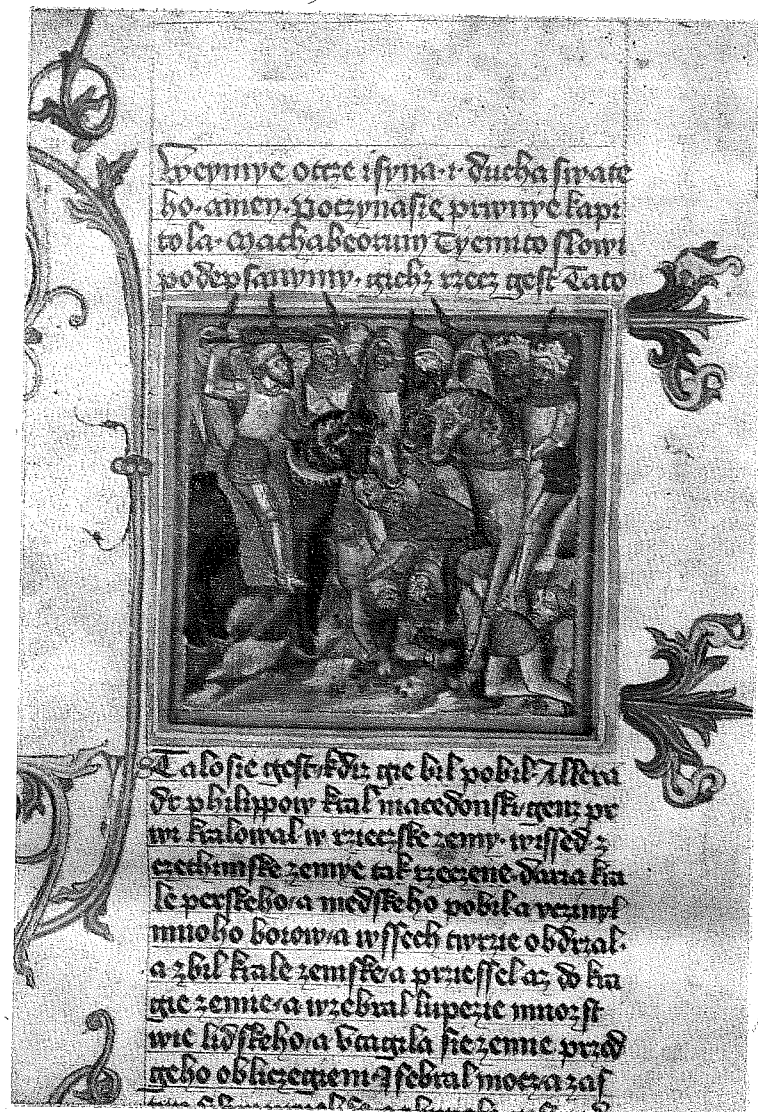 Weymye otcze isyna · i · ducha swate
ho · amen · Poczynasie prwnye kapi
tola · Machabeorum Tyemito slowi
podepsanymy · gichz rzecz gest Tato
Talosie gest kdiz gie bil pobil Allexa
dr philippow kral macedonski genz pr
wi kralowal w rzieczske zemy · wissed z
czethimske zemye tak rzeczene · daria kra
le perskeho a medskeho pobil a vczinil
mnoho bojow a wssech twrzie obdrzal ·
a zbil krale zemske a przissel az do kra
gie zemie a wzebral lupezie mnozst
wie lidskeho a vtagila sie zemie przed
geho obliczegiem Jsebral mocz a zas